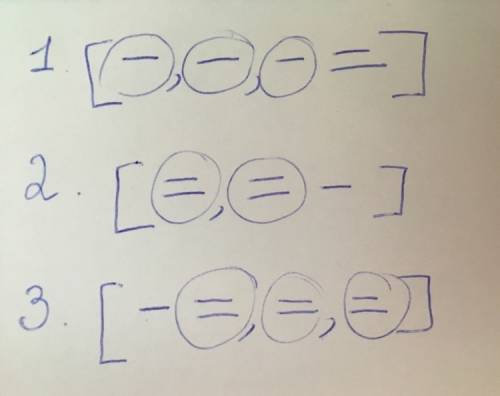 1. [—, —, — =]
2. [=, = —]
3. [— =, =, =]